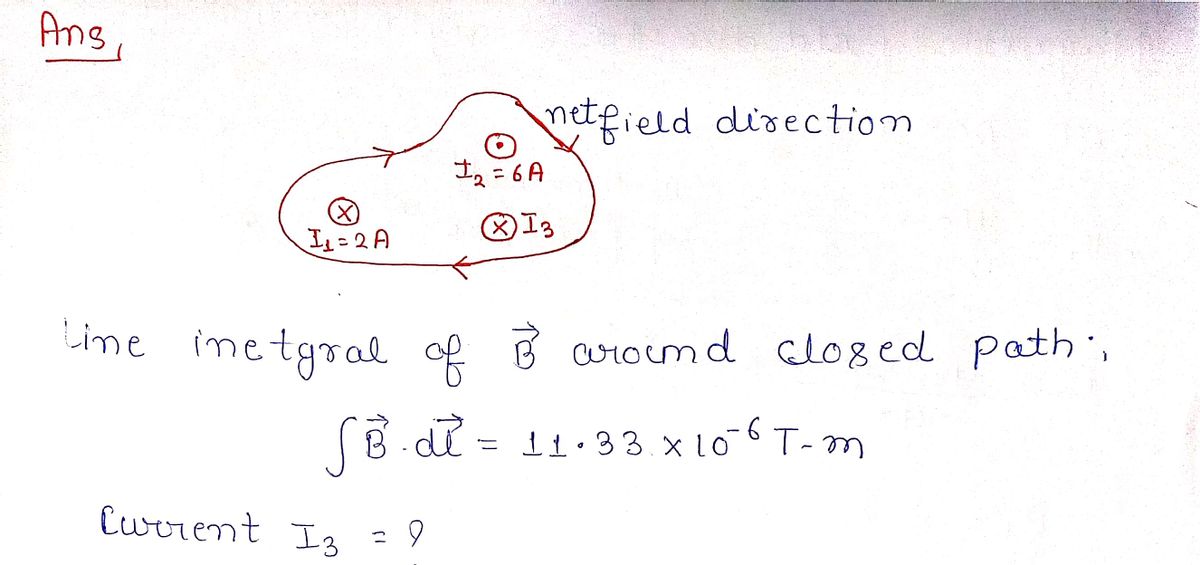 Ans,
netfield direction
⊙
I₂ = 6A
ⓧ
I₁ = 2A
ⓧ I₃
Line inetgral of B⃗ around closed path;,
∫B⃗ . dl⃗ = 11.33 x 10⁻⁶ T-m
Current I₃ = ?